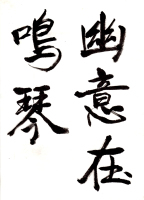 幽意在
鳴琴